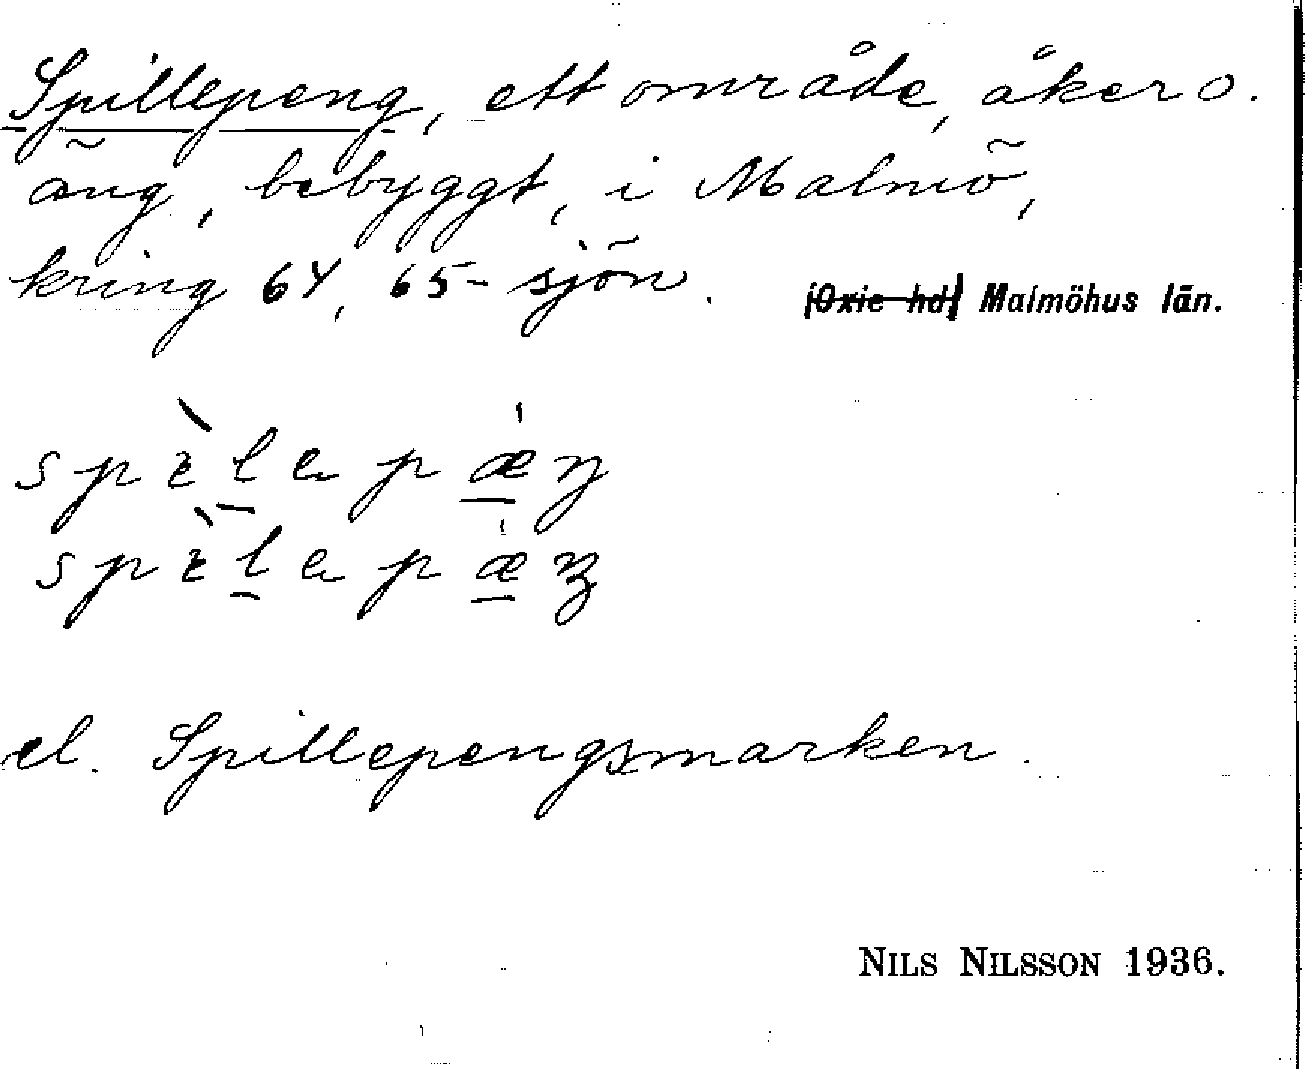 Spillepeng, ett område, åker o.
äng, bebyggt, i Malmö,
kring 64, 65-sjön. [Oxie hd] Malmöhus län.
el. Spillepengsmarken.
NILS NILSSON 1936.